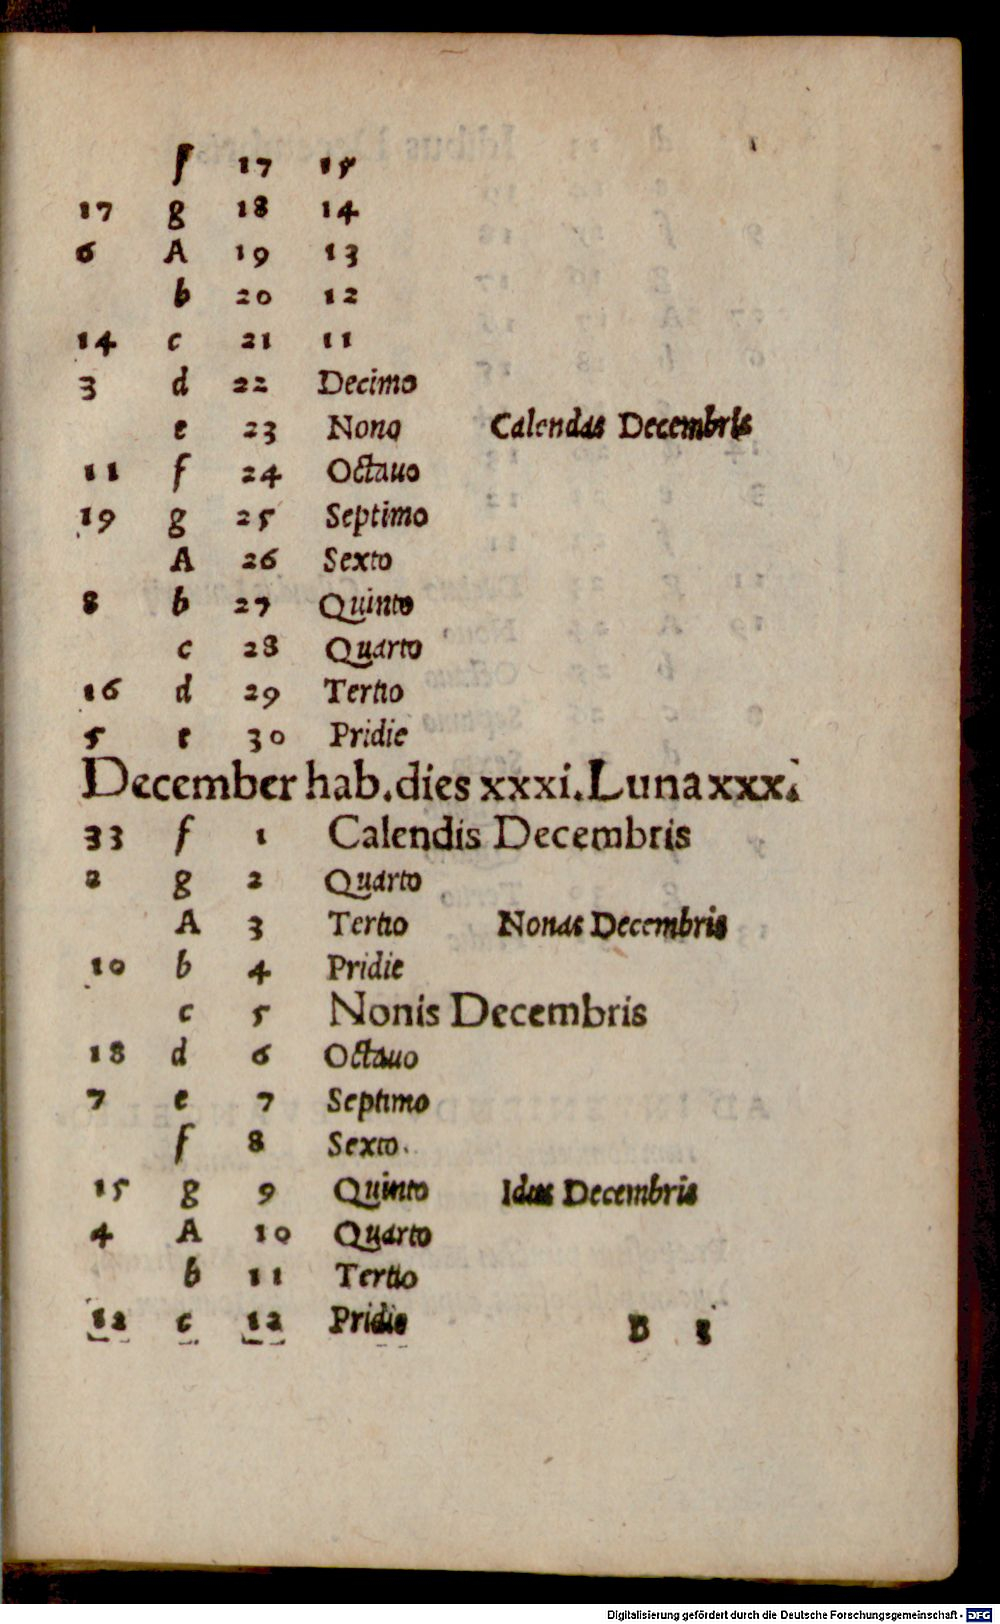 f 17 15
17 g 18 14
6 A 19 13
b 20 12
14 c 21 11
3 d 22 Decimo
e 23 Nono Calendas Decembris
11 f 24 Octauo
19 g 25 Septimo
A 26 Sexto
8 b 27 Quinto
c 28 Quarto
16 d 29 Tertio
5 e 30 Pridie
December hab.dies xxxi.Luna xxx.
33 f 1 Calendis Decembris
2 g 2 Quarto
A 3 Tertio Nonas Decembris
10 b 4 Pridie
c 5 Nonis Decembris
18 d 6 Octauo
7 e 7 Septimo
f 8 Sexto.
15 g 9 Quinto Idus Decembris
4 A 10 Quarto
b 11 Tertio
12 c 12 Pridie
B
Digitalisierung gefördert durch die Deutsche Forschungsgemeinschaft - DFG